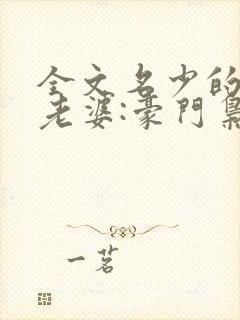 全文名少的
老婆:豪門梟
一茗